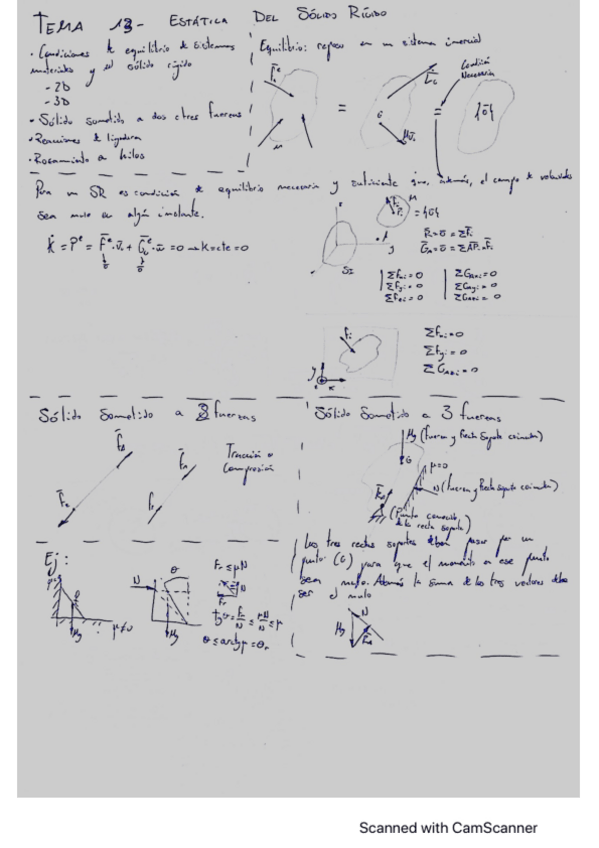 TEMA 13- ESTÁTICA DEL SÓLIDO RÍGIDO
· Condiciones de equilibrio de sistemas
materiales y el sólido rígido
- 2D
- 3D
· Sólido sometido a dos o tres fuerzas
· Reacciones de ligadura
· Rozamiento a hilos
Equilibrio: reposo en un sistema inercial
Condición
Necesaria
=
=
{0}
Para un SR es condición de equilibrio necesaria y suficiente que, además, el campo de velocidades
sea nulo en algún instante.
= {0}
ΣFxi = 0
ΣFyi = 0
ΣFzi = 0
ΣGAxi = 0
ΣGAyi = 0
ΣGAzi = 0
ΣFxi = 0
ΣFyi = 0
ΣGAzi = 0
Sólido Sometido a 2 fuerzas
Tracción o
Compresión
Sólido Sometido a 3 fuerzas
Mg (Fuerza y Recta Soporte conocida)
G
μ=0
N (Fuerza y Recta soporte conocida)
(Punto conocido
de la recta soporte)
Las tres rectas soportes deben pasar por un
punto (C) para que el momento en ese punto
sea nulo. Además la suma de los tres vectores debe
ser el nulo
N
Mg
Ej:
Mg
μ≠0
N
θ
Mg
Fr ≤ μN
N
Fr
tgθ = Fr/N ≤ μN/N ≤ μ
θ ≤ arctgμ = θr
Scanned with CamScanner